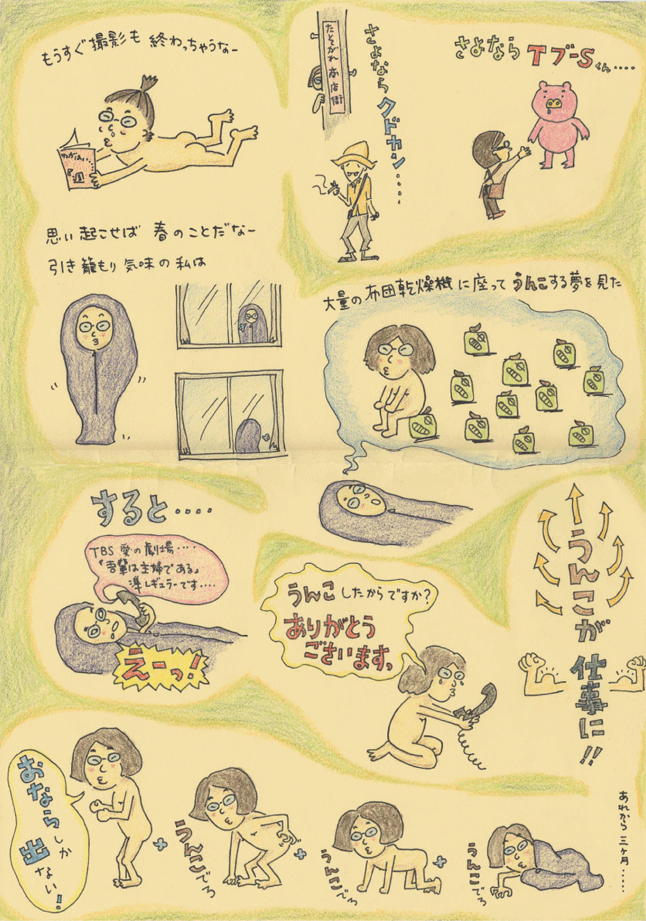 もうすぐ撮影も終わっちゃうなー
8週
たそがれ商店街
さよならクドカン....
さよならTブーSくん....
思い起こせば春のことだなー
引き籠もり気味の私は
大量の布団乾燥機に座ってうんこする夢を見た
すると....
TBS愛の劇場....
「吾輩は主婦である」
準レギュラーです....
えーっ!
うんこしたからですか?
ありがとう
ございます。
うんこが仕事に!!
あれから三ヶ月......
うんこでろ
うんこでろ
うんこでろ
おならしか
出ない!